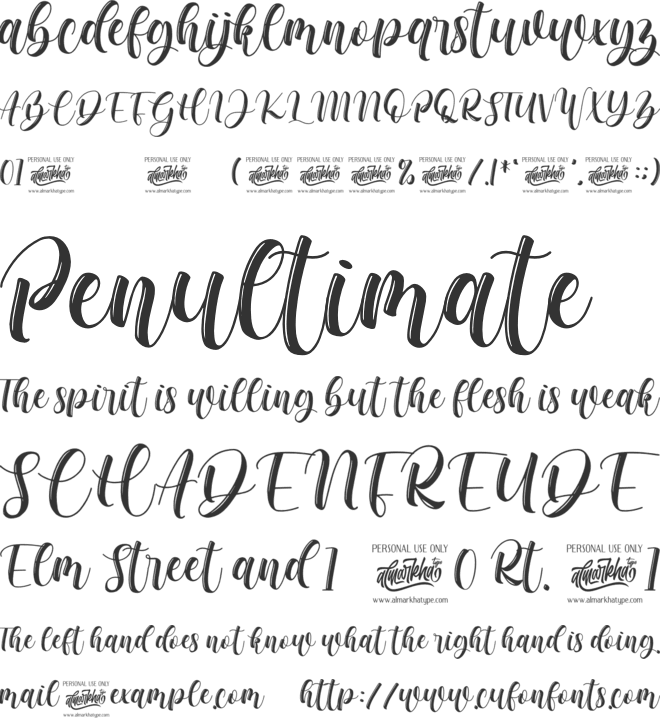 abcdefghijklmnopqrstuvwxyz
ABCDEFGHIJKLMNOPQRSTUVWXYZ
01 PERSONAL USE ONLY almarkha type www.almarkhatype.com PERSONAL USE ONLY almarkha type www.almarkhatype.com ( PERSONAL USE ONLY almarkha type www.almarkhatype.com PERSONAL USE ONLY almarkha type www.almarkhatype.com PERSONAL USE ONLY almarkha type www.almarkhatype.com % PERSONAL USE ONLY almarkha type www.almarkhatype.com /.|*' PERSONAL USE ONLY almarkha type www.almarkhatype.com '. PERSONAL USE ONLY almarkha type www.almarkhatype.com ::)
Penultimate
The spirit is willing but the flesh is weak
SCHADENFREUDE
Elm Street and 1 PERSONAL USE ONLY almarkha type www.almarkhatype.com 0 Rt. PERSONAL USE ONLY almarkha type www.almarkhatype.com 1
The left hand does not know what the right hand is doing.
mail PERSONAL USE ONLY almarkha type www.almarkhatype.com example.com http://www.cufonfonts.com